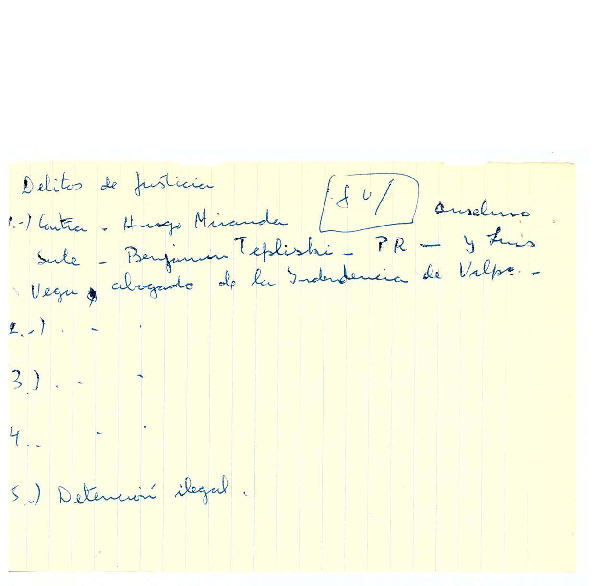 Delitos de Justicia
1.-) Contra - Hugo Miranda Anselmo
Sule - Benjamin Tepliski - PR - y Luis
Vega, abogado de la Intendencia de Valpo. -
2.-) . - .
3.) . - -
4.. - .
5.-) Detención ilegal.